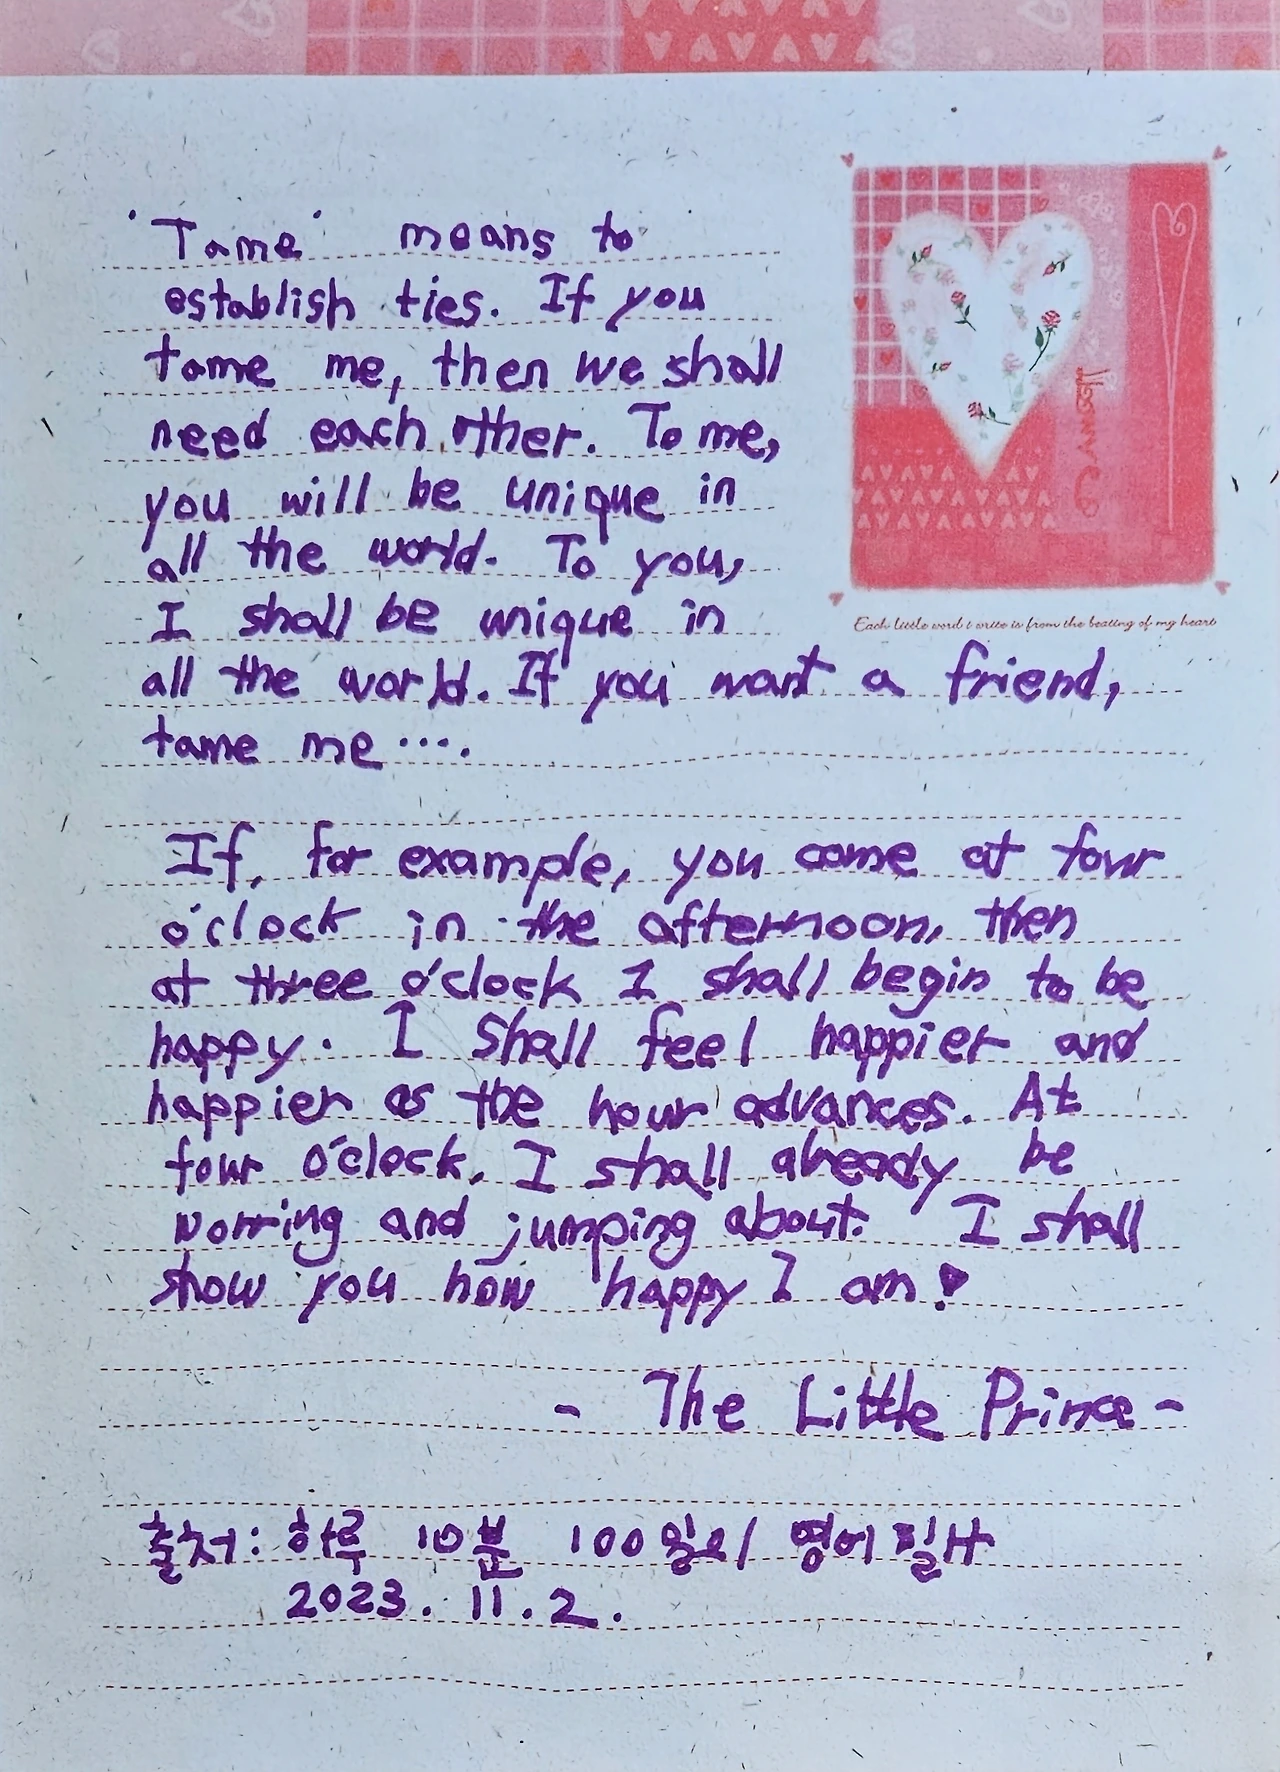 'Tame' means to
establish ties. If you
tame me, then we shall
need each other. To me,
you will be unique in
all the world. To you,
I shall be unique in
all the world. If you want a friend,
tame me ····.
Each little word I write is from the beating of my heart
If, for example, you come at four
o'clock in the afternoon, then
at three o'clock I shall begin to be
happy. I shall feel happier and
happier as the hour advances. At
four o'clock, I shall already be
worring and jumping about. I shall
show you how happy I am!
- The Little Prince -
출처: 하루 10분 100일의 영어필사
2023. 11. 2.